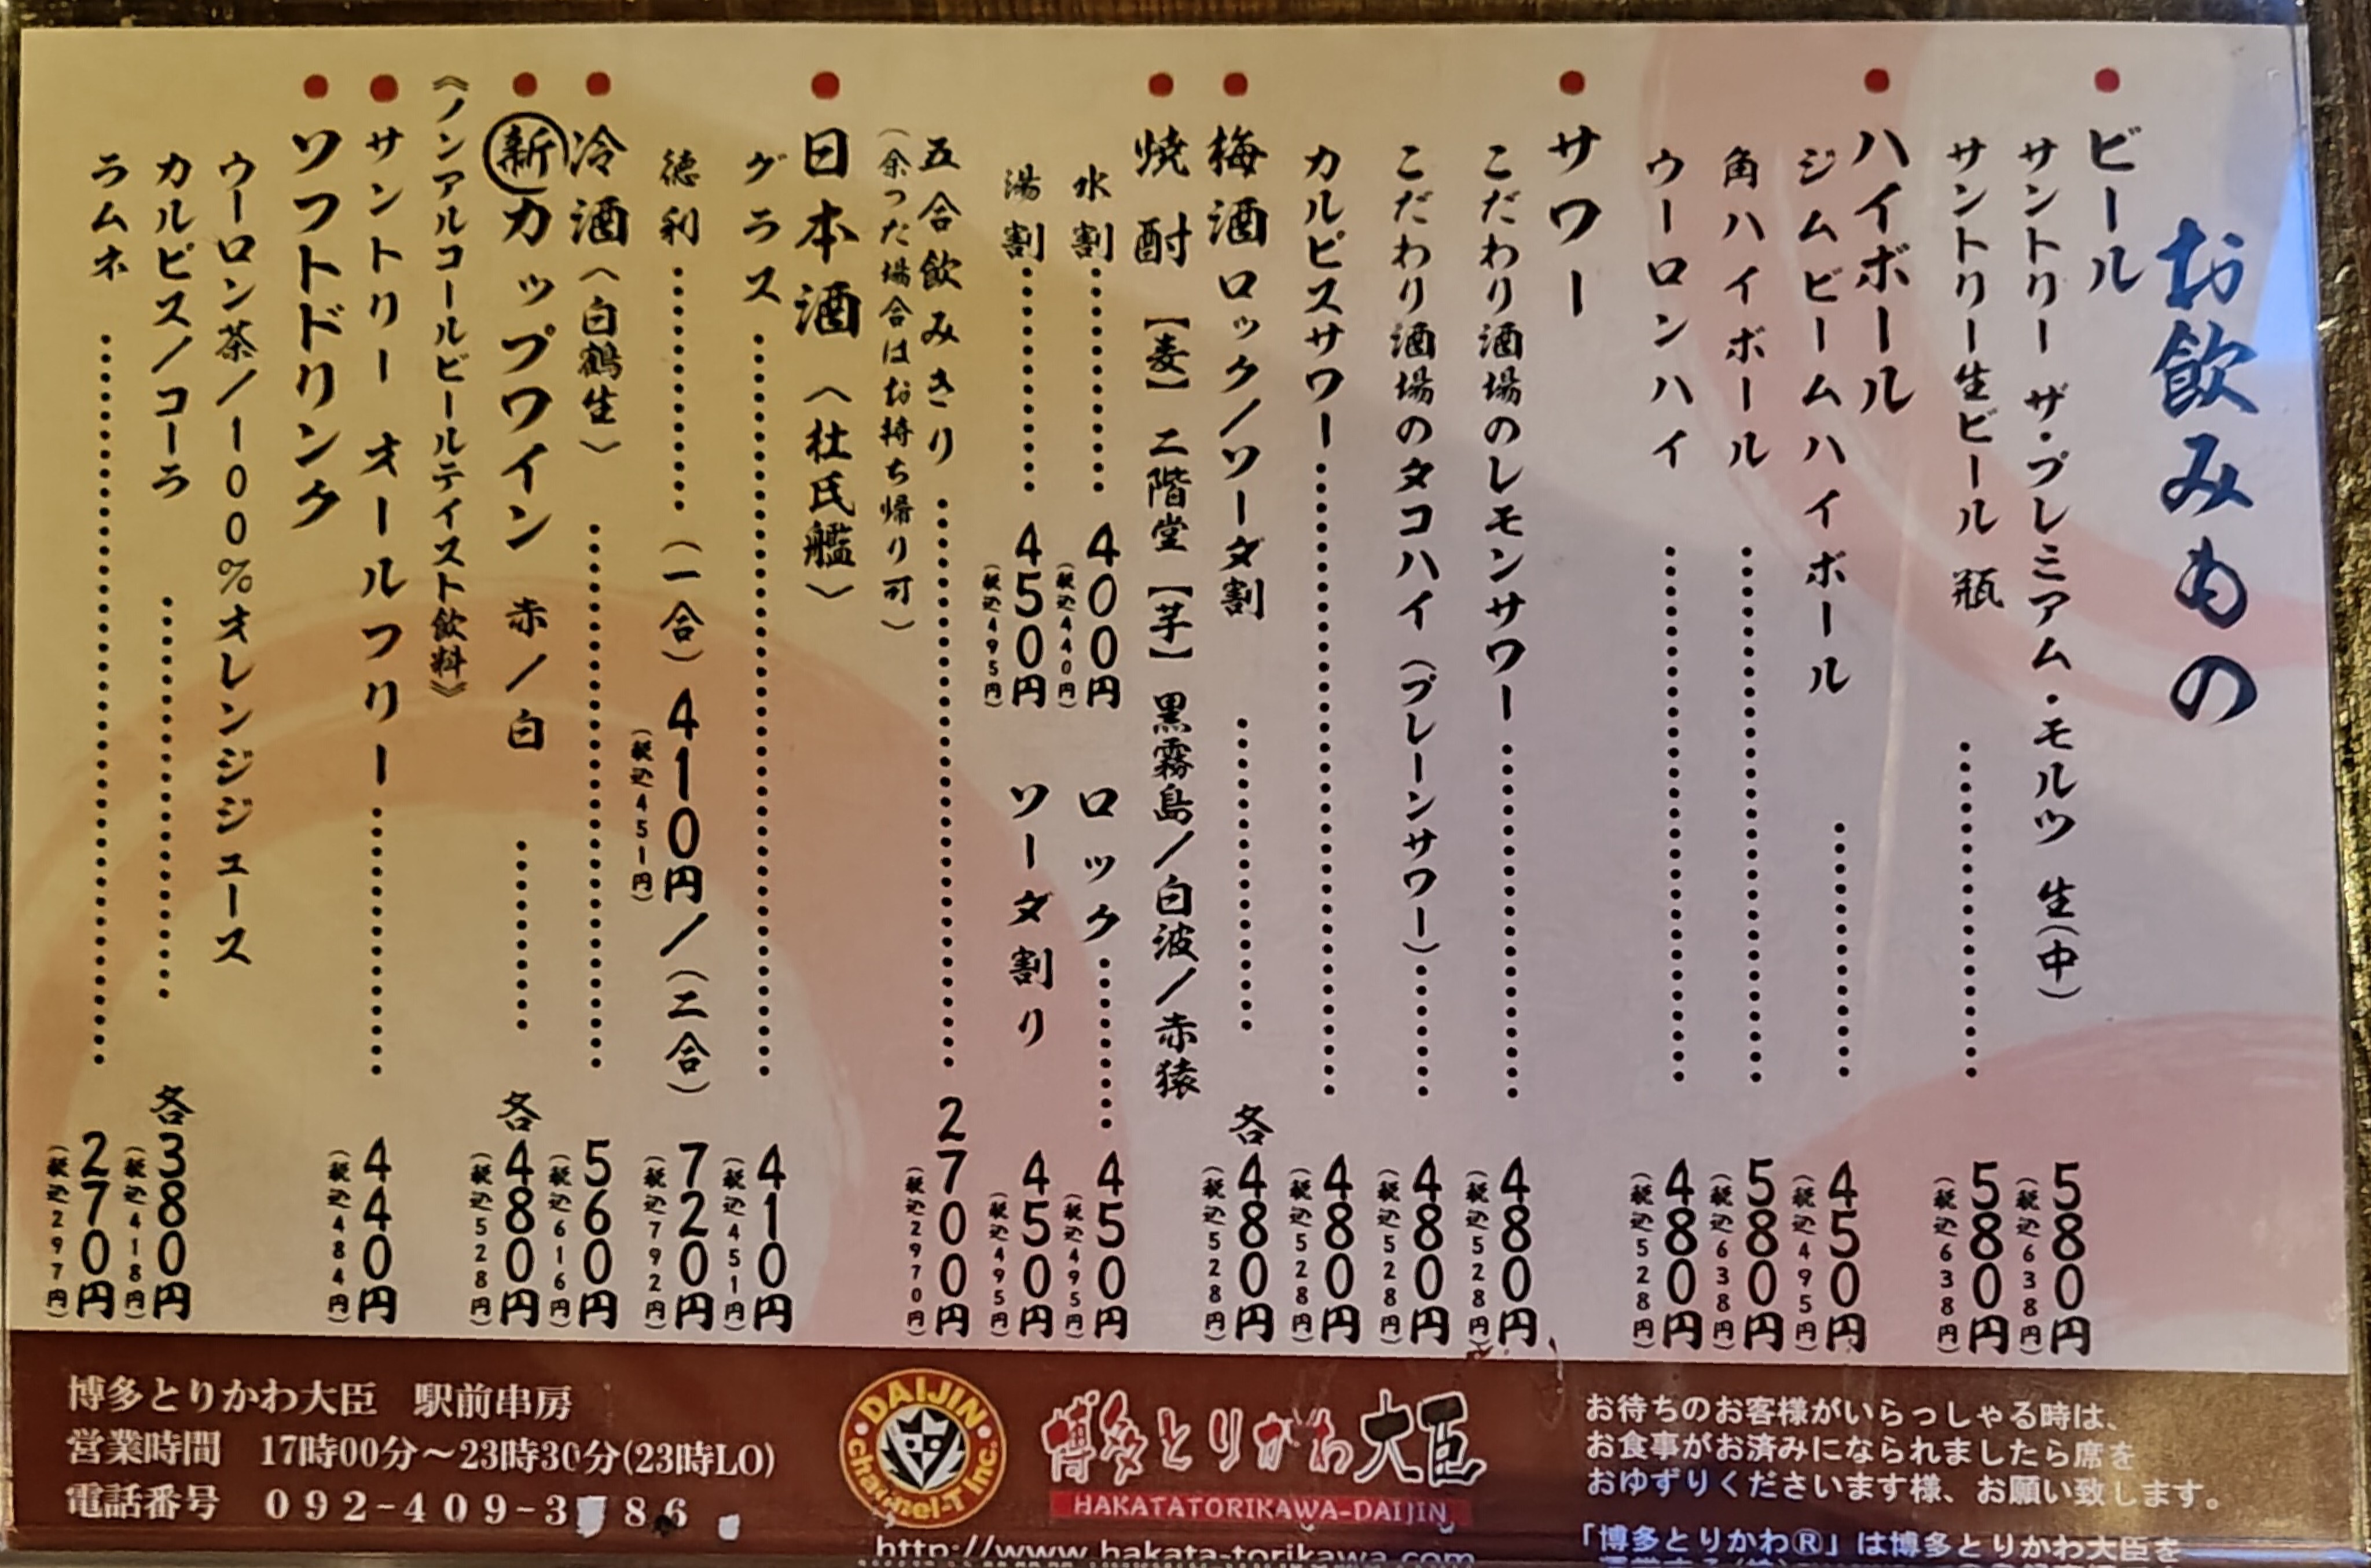 お飲みもの
ビール
サントリー ザ・プレミアム・モルツ 生(中) 580円
(税込638円)
サントリー生ビール 瓶 ………… 580円
(税込638円)
ハイボール
ジムビームハイボール ………… 450円
(税込495円)
角ハイボール ………… 580円
(税込638円)
ウーロンハイ ………… 480円
(税込528円)
サワー
こだわり酒場のレモンサワー ………… 480円
(税込528円)
こだわり酒場のタコハイ(プレーンサワー) ………… 480円
(税込528円)
カルピスサワー ………… 480円
(税込528円)
梅酒 ロック/ソーダ割 ………… 各480円
(税込528円)
焼酎 【麦】二階堂 【芋】黒霧島/白波/赤猿
水割 ………… 400円 ロック ………… 450円
(税込440円) (税込495円)
湯割 ………… 450円 ソーダ割り 450円
(税込495円) (税込495円)
五合飲みきり ………… 2700円
(税込2970円)
(余った場合はお持ち帰り可)
日本酒 〈杜氏艦〉
グラス ………… 410円
(税込451円)
徳利 ………… (一合)410円/(二合)720円
(税込451円) (税込792円)
冷酒〈白鶴生〉 ………… 560円
(税込616円)
新カップワイン 赤/白 ………… 各480円
(税込528円)
《ノンアルコールビールテイスト飲料》
サントリー オールフリー ………… 440円
(税込484円)
ソフトドリンク
ウーロン茶/100%オレンジジュース
カルピス/コーラ ………… 各380円
(税込418円)
ラムネ ………… 270円
(税込297円)
博多とりかわ大臣 駅前串房
営業時間 17時00分~23時30分(23時LO)
電話番号 092-409-3 86
DAIJIN
channel-T Inc.
博多とりかわ大臣
HAKATATORIKAWA-DAIJIN
http://www.hakata-torikawa.com
お待ちのお客様がいらっしゃる時は、
お食事がお済みになられましたら席を
おゆずりくださいます様、お願い致します。
「博多とりかわ®」は博多とりかわ大臣を